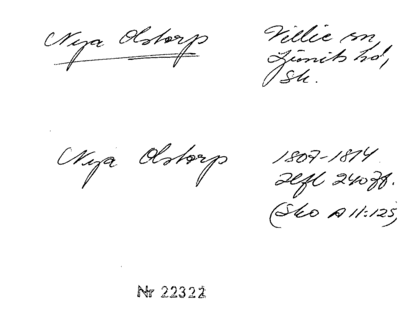 Nya Olstorp
Villie sn,
Ljunits hd,
Sk.
Nya Olstorp
1807-1814
Hfl 240 ff.
(Sko A II:125)
Nr 22322